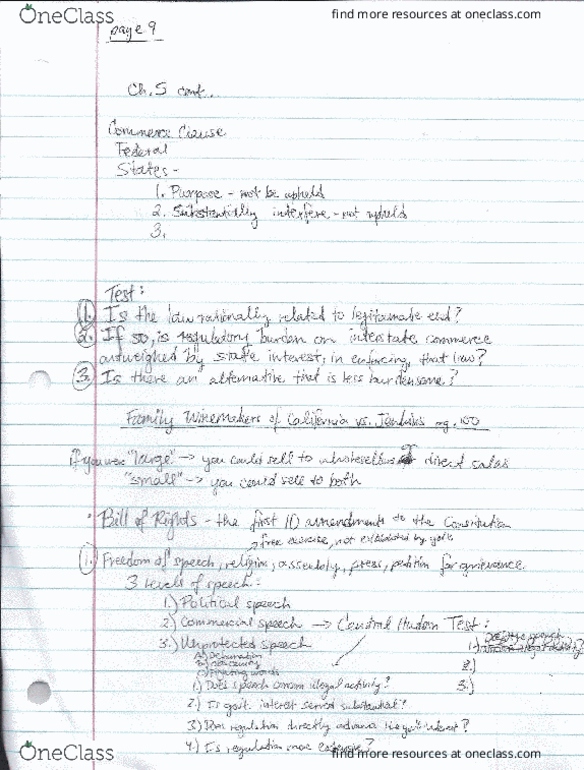 OneClass
find more resources at oneclass.com
page 9
Ch. 5 cont.
Commerce Clause
Federal
States -
1. Purpose - not be upheld
2. Substantially interfere - not upheld
3.
Test:
1. Is the law rationally related to legitimate end?
2. If so, is regulatory burden on interstate commerce
outweighed by state interest, in enforcing, that law?
3. Is there an alternative that is less burdensome?
Family Winemakers of California vs. Jenkins pg. 100
if you were "large" → you could sell to direct sales
"small" → you could sell to both
Bill of Rights - the first 10 amendments to the Constitution
→ free exercise, not established by
1. Freedom of speech, religion, assembly, press, petition for grievance.
3 levels of speech:
1.) Political speech
2) Commercial speech → Central Hudson Test:
3.) Unprotected speech
a) Defamation
c) Fighting words
1.)
2.)
3.)
1.) Does speech concern illegal activity?
2.) Is govt. interest served substantial?
3) Does regulation directly advance interest?
4.) Is regulation more extensive?
OneClass
find more resources at oneclass.com